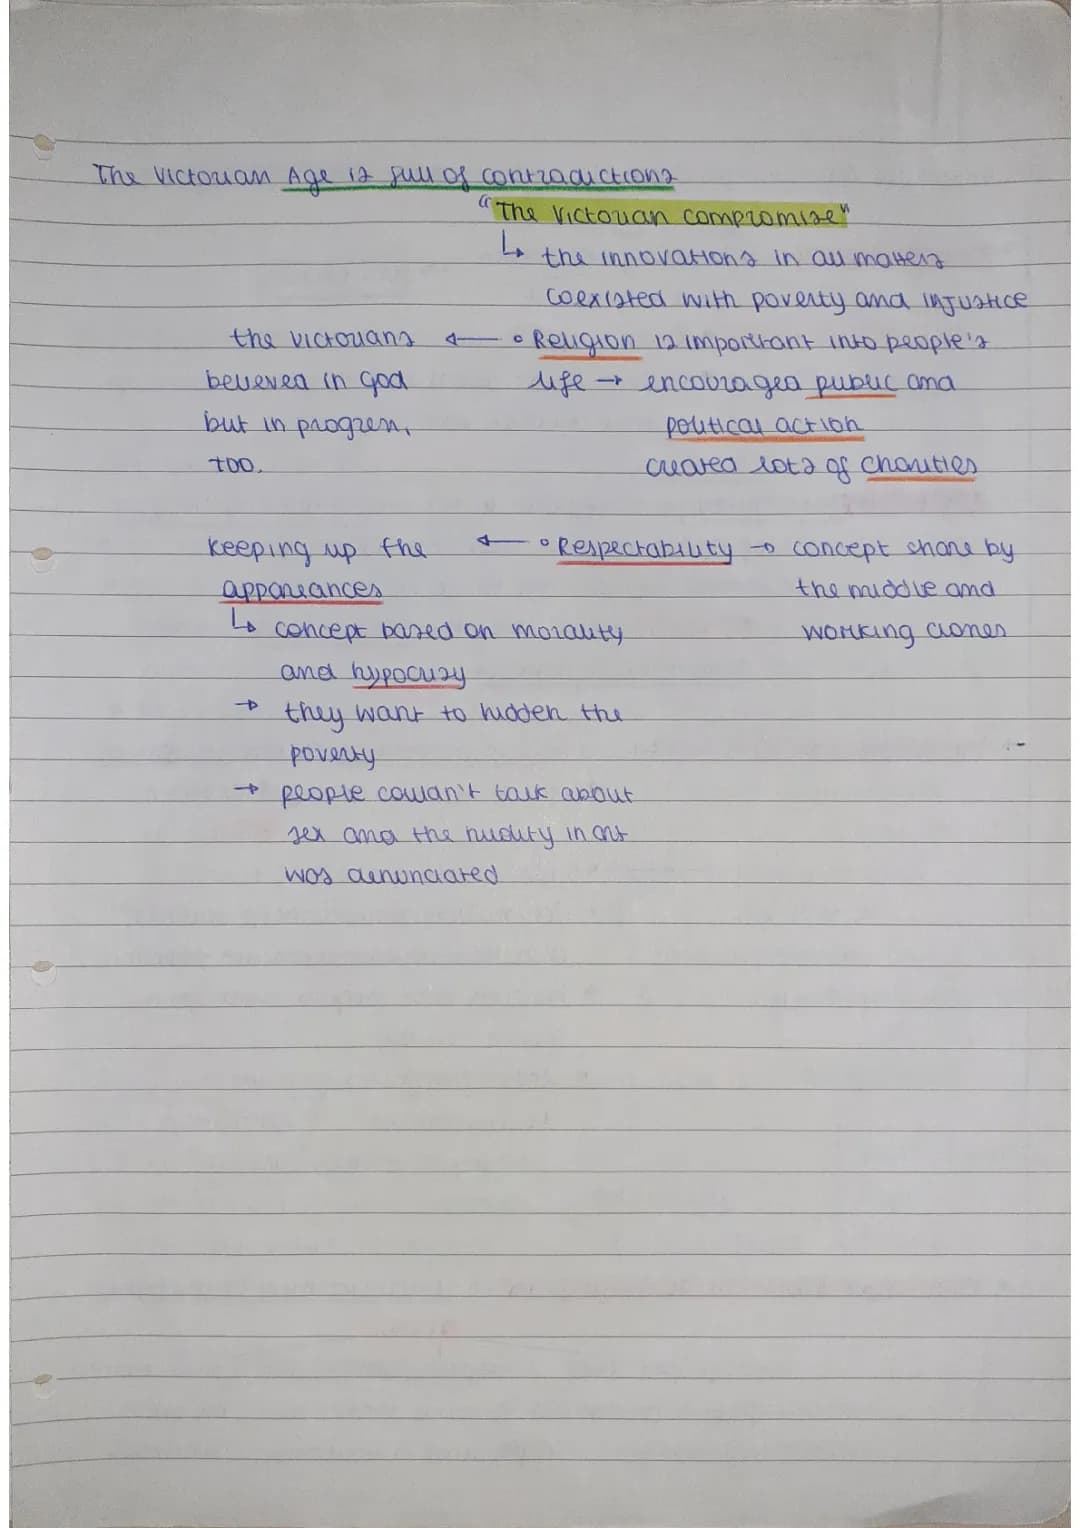 The Victorian Age is full of contradictions
"The Victorian compromise"
↳ the innovations in all matters
coexisted with poverty and injustice
the victorians ← ° Religion is important into people's
believed in god life → encouraged public and
but in progress, political action
too. created lots of charities
keeping up the ← ° Respectability → concept share by
appareances the middle and
↳ concept based on morality working classes
and hypocrisy
→ they want to hidden the
poverty
→ people couldn't talk about
sex and the nudity in art
was denunciated